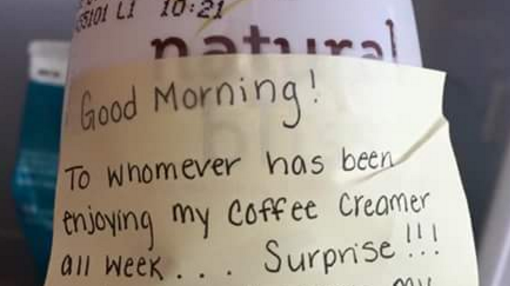 5101 L1 10:21
natural
Good Morning!
To whomever has been
enjoying my coffee creamer
all week... Surprise!!!
my